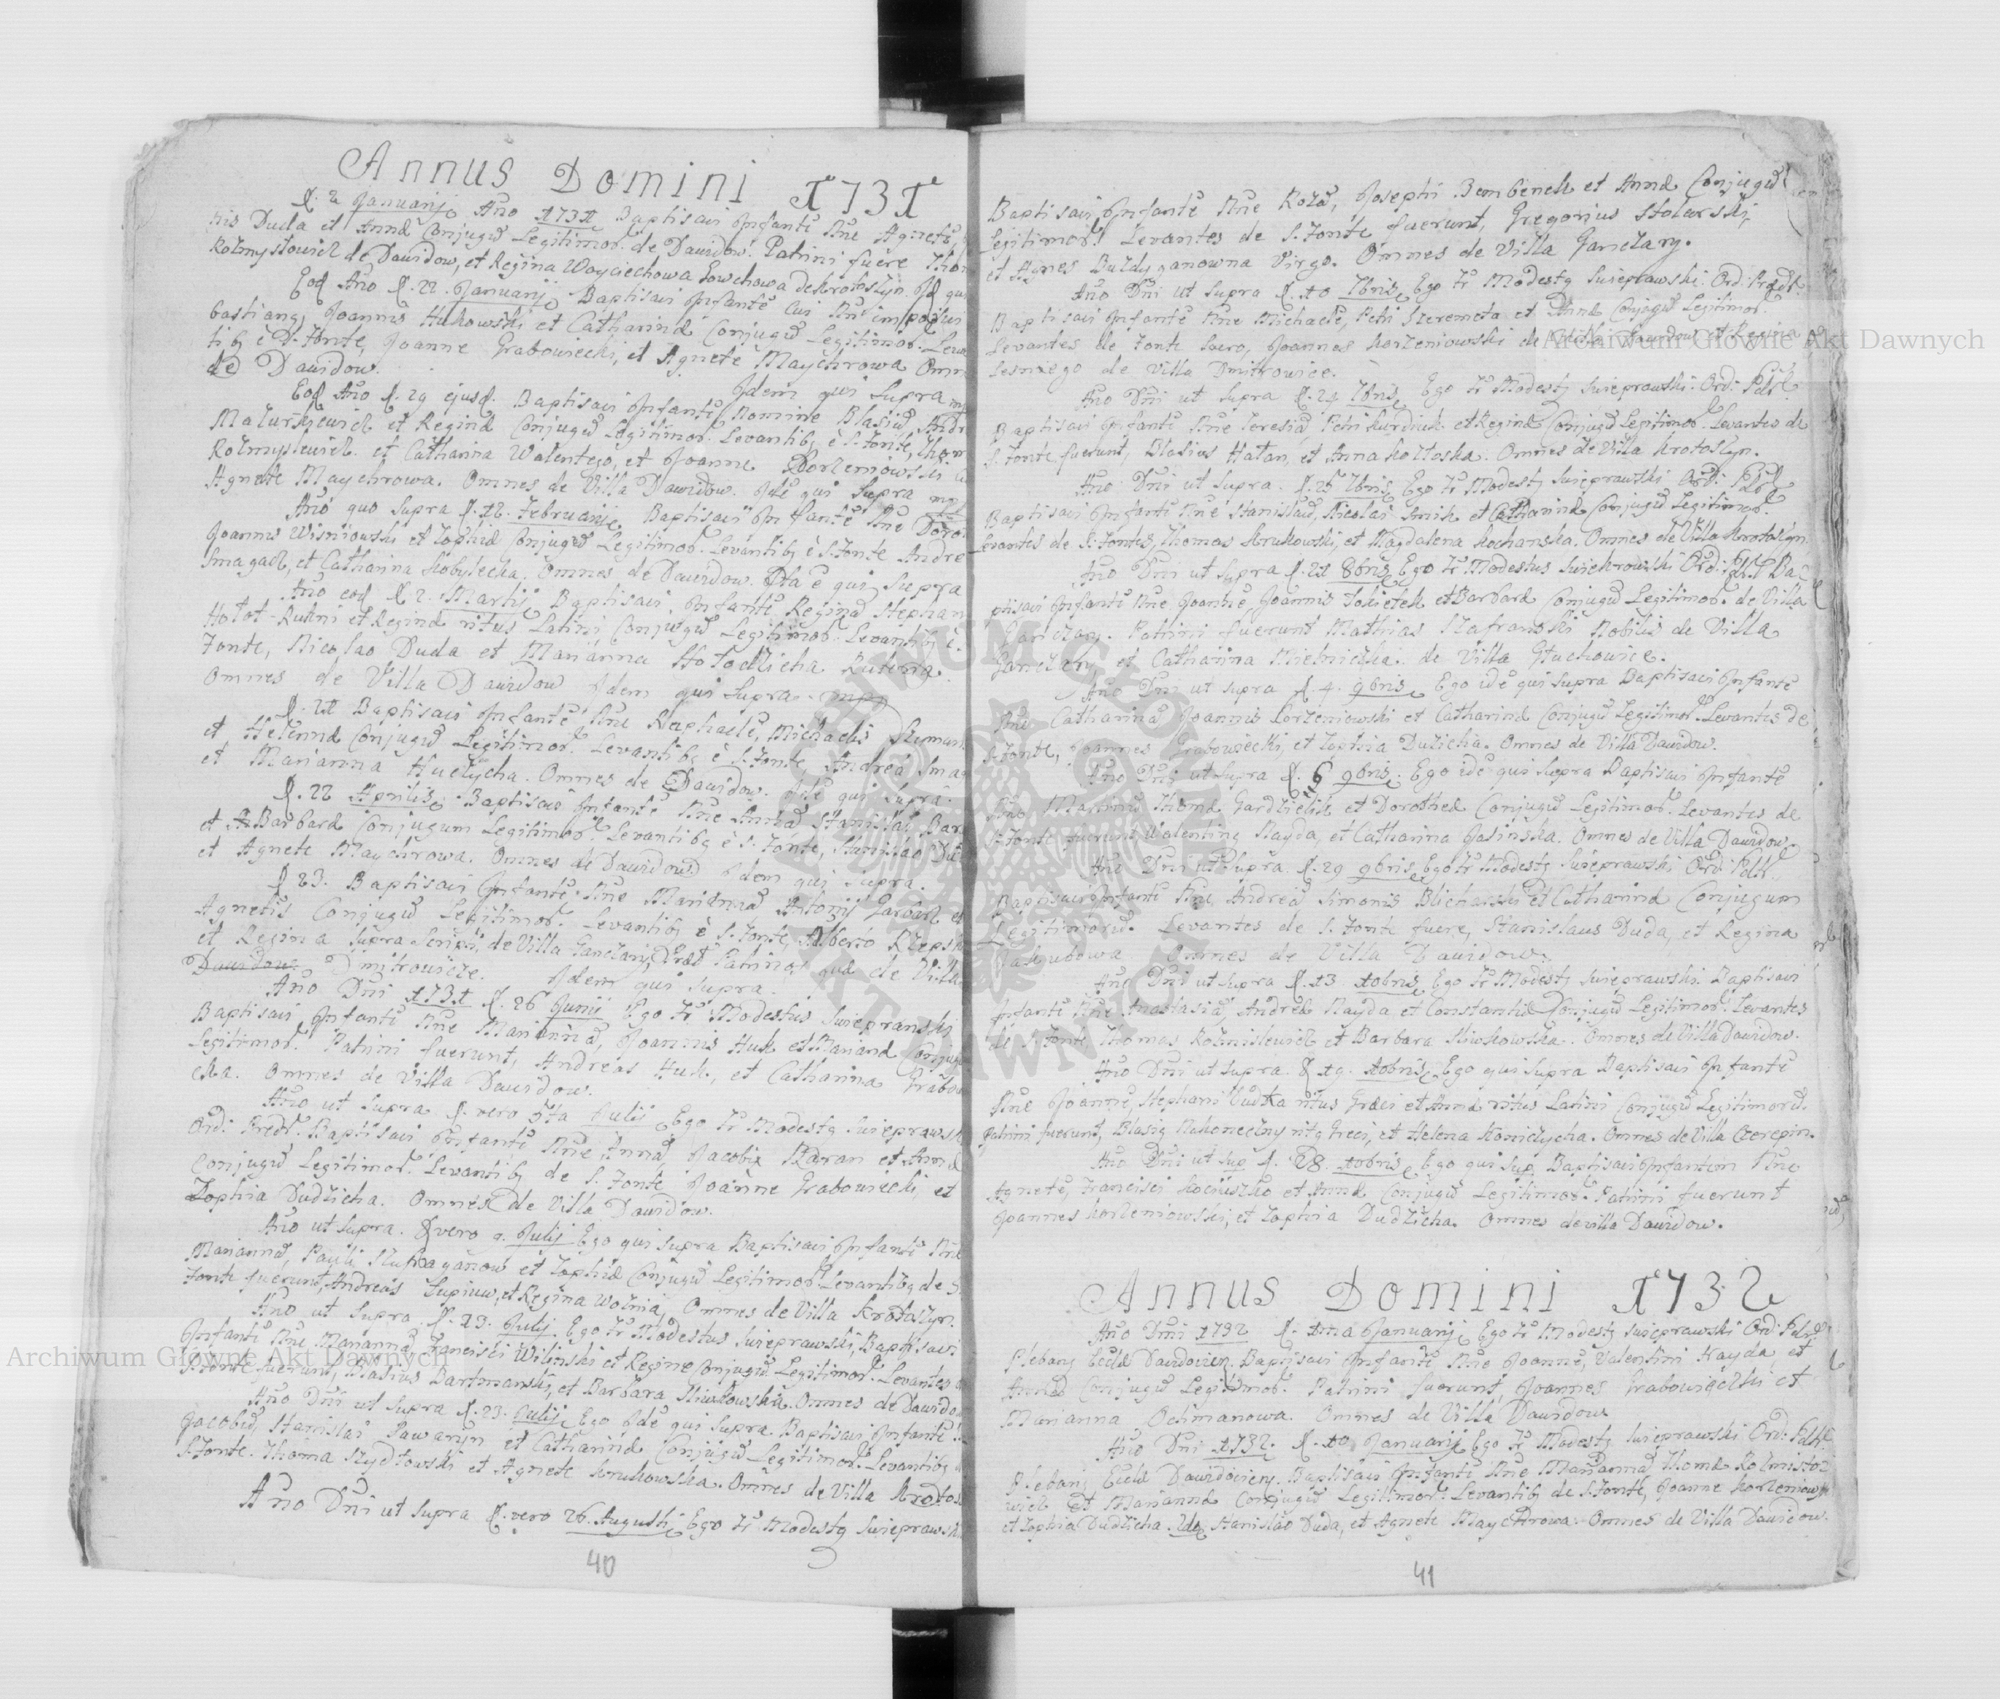 Annus Domini 1731
d. 2 Januarij Año 1731 Baptisavi Infantē Nñe Agnetē,
nis Duda et Annæ Conjugū Legitimor. de Dawidow. Patrini fuere Thom
Rozmysłowicz de Dawidow, et Regina Woyciechowa Łowchowa de Krotoszyn.
Eod Año d. 22. Januarij Baptisavi Infantē cui Nñē imposui
bastiang, Joannis Hukowski et Catharinæ Conjugū Legitimor. Leva
tibg è S. Fonte, Joanne Grabowiecki, et Agnete Maychrowa Omn
de Dawidow. Idem qui supra mp
Eod Año d. 29 ejusd. Baptisavi Infantē Nomine Blasiū, Andr
Mazurkiewicz et Reginæ Conjugū Legitimor. Levantibg è S. Fonte, Thom
Rozmysłewicz. et Catharina Walentego, et Joanne Korzeniowski
Agnete Maychrowa. Omnes de Villa Dawidow. Idē qui supra mp
Año quo supra d. 12. Februarij Baptisavi Infantē Nñe Doro
Joannis Wisniowski et Zophiæ Conjugū Legitimor. Levantibg è S. Fonte Andre
Smagacz, et Catharina Kobylecka. Omnes de Dawidow. Ita ē qui supra
Año eod d 2. Martij Baptisavi Infantē Reginā Stephan
Hołot-Rutkni et Reginæ ritus Latini Conjugū Legitimor. Levantibg è S.
Fonte, Nicolao Duda et Marianna Hołodzicha Ruthena.
Omnes de Villa Dawidow Idem qui supra. mp
d. 21 Baptisavi Infantē Nñe Raphaelē, Michaelis Szuman
et Helennæ Conjugū Legitimor. Levantibg è S. Fonte, Andrea Sma
et Marianna Huczycha. Omnes de Dawidow. Idē qui supra.
d. 22 Aprilis Baptisavi Infantē Nñe Annā Stanislai Bar
et Barbaræ Conjugum Legitimor. Levantibg è S. Fonte, Stanislao Du
et Agnete Maychrowa. Omnes de Dawidow. Idem qui supra.
d 23. Baptisavi Infantē Nñe Mariannā Antonij Garbacz et
Agnetis Conjugū Legitimor. Levantibg è S. Fonte, Alberto Rzepsk
et Regina supra Scripti, de Villa Ganczary, Præt Patrina, quæ de Villa
Dawidow. Dmitrowicze. Idem qui supra.
Año Dñi 1731 d. 26 Junij Ego Fr Modestus Swieprawski
Baptisavi Infantē Nñe Mariannā, Joannis Huk et Mariannæ Conjug
Legitimor. Patrini fuerunt, Andreas Huk, et Catharina Grabow
cka. Omnes de Villa Dawidow.
Año ut supra d. vero 5ta Julij Ego Fr Modestg Swieprawsk
Ord: Præd. Baptisavi Infantē Nñe Annā Jacobi Baran et Annæ
Conjugū Legitimor. Levantibg de S. Fonte Joanne Grabowiecki, et
Zophia Dudzicha. Omnes de Villa Dawidow.
Año ut supra. d vero 9. Julij Ego qui supra Baptisavi Infantē Nñe
Mariannā, Pauli et Zophiæ Conjugū Legitimor. Levantibg de S.
Fonte fuerunt, Andreas Łupiuw, et Regina Wołnia, Omnes de Villa Krotoszyn.
Año ut supra. d. 23. Julij Ego Fr Modestus Swieprawski, Baptisavi
Infantē Nñe Mariannā, Francisci Wilinski et Reginæ Conjugū Legitimor. Levantes
S. Fonte fuerunt, Blasius Bartmanski, et Barbara Sliwkowska. Omnes de Dawido
Año Dñi ut supra d. 23. Julij Ego Idē qui supra. Baptisavi Infantē
Jacobū, Stanislai Pawaryn et Catharinæ Conjugū Legitimor. Levantibg
S. Fonte. Thoma Szydłowski et Agnete Krukowska. Omnes de Villa Krotos
Año Dñi ut supra d. vero 26. Augusti Ego Fr Modestg Swieprawsk
40
Baptisavi Infantē Nñe Rozā, Josephi Bembenek et Annæ Conjugū
Legitimor. Levantes de S. Fonte fuerunt, Gregorius Stolarski,
et Agnes Bułdyganowna Virgo. Omnes de Villa Ganczary.
Año Dñi ut supra d. 10 7bris Ego Fr Modestg Swieprawski. Ord: Prædt.
Baptisavi Infantē Nñe Michaelē, Petri Szeremeta et Annæ Conjugū Legitimor.
Levantes de Fonte sacro, Joannes Korzeniowski de Villa Dawidow et Regina
Lesniego de Villa Dmitrowice.
Año Dñi ut supra d. 21 7bris, Ego Fr Modestg Swieprawski: Ord: Pdt.
Baptisavi Infantē Nñe Teresiā Petri Kurdziuk et Reginæ Conjugū Legitimor. Levantes de
S. Fonte fuerunt, Blasius Hatan, et Anna Kozłoska. Omnes de Villa Krotoszyn.
Año Dñi ut supra. d. 25 7bris Ego Fr Modestg Swieprawski Ord: Pdt
Baptisavi Infantē Nñe Stanislaū, Nicolai Smik et Catharinæ Conjugū Legitimor.
Levantes de S. Fontes, Thomas Krukowski, et Magdalena Kochanska. Omnes de Villa Krotoszyn.
Año Dñi ut supra d. 21 8bris Ego Fr Modestus Swieprowski Ord: Pdt Ba
ptisavi Infantē Nñe Joannē, Joannis Łokietek et Barbaræ Conjugū Legitimor. de Villa
Ganczary. Patrini fuerunt Mathias Szafranski Nobilis de Villa
Ganczary et Catharina Mielniczka de Villa Głuchowice.
Año Dñi ut supra d. 4. 9bris Ego idē qui supra Baptisavi Infantē
Nñe Catharinā Joannis Korzeniowski et Catharinæ Conjugū Legitimor. Levantes de
S. Fonte, Joannes Grabowiecki, et Zophia Dudzicha. Omnes de Villa Dawidow.
Año Dñi ut supra d. 6 9bris. Ego idē qui supra Baptisavi Infantē
Nñe Martinū Thomæ Gardzielik et Dorotheæ Conjugū Legitimor. Levantes de
S. Fonte fuerunt Walenting Nayda, et Catharina Jasinska. Omnes de Villa Dawidow.
Año Dñi ut supra. d. 29 9bris, Ego Fr Modestg Swieprawski Ord: Pdt.
Baptisavi Infantē Nñe Andreā Simonis Blicharski et Catharinæ Conjugum
Legitimorū. Levantes de S. Fonte fuere, Stanislaus Duda, et Regina
Jakubowa. Omnes de Villa Dawidow.
Año Dñi ut supra d. 13. 10bris, Ego Fr Modestg Swieprawski. Baptisavi
Infantē Nñe Anastasiā, Andreæ Nayda et Constantiæ Conjugū Legitimor. Levantes
de S. Fonte Thomas Rozmislewicz et Barbara Sliwkowska. Omnes de Villa Dawidow.
Año Dñi ut supra. d 19. 10bris, Ego qui supra Baptisavi Infantē
Nñe Joannē, Stephani ritus Græci et Annæ ritus Latini Conjugū Legitimorū.
Patrini fuerunt, Blasig Nakoneczny ritg Greci, et Helena Koniczycha. Omnes de Villa Czerepin.
Año Dñi ut sup d. 28. 10bris, Ego qui sup Baptisavi Infantem Nñe
Agnetē, Francisci Kociuszko et Annæ Conjugū Legitimor. Patrini fuerunt
Joannes Korzeniowski, et Zophia Dudzicha. Omnes de villa Dawidow.
Annus Domini 1732
Año Dñi 1732 d. 1ma Januarij Ego Fr Modestg Swieprawski Ord: Pdt.
Plebang Eccłæ Dawidovien. Baptisavi Infantē Nñe Joannē, Valentini Nayda et
Annæ Conjugū Legitimor. Patrini fuerunt, Joannes Grabowiecki et
Marianna Ochmanowa. Omnes de Villa Dawidow
Año Dñi 1732. d. 10 Januarij Ego Fr Modestg Swieprawski Ord: Pdt.
Plebang Eccłæ Dawidovieng. Baptisavi Infantē Nñe Mariannā Thomæ Rozmisło
wicz et Mariannæ Conjugū Legitimor. Levantibg de S. Fonte, Joanne Korzeniowsk
et Zophia Dudzicha. 2do Stanislao Duda, et Agnete Maychrowa. Omnes de Villa Dawidow.
41
Archiwum Główne Akt Dawnych
Archiwum Główne Akt Dawnych
ARCHIWUM GŁÓWNE AKT DAWNYCH